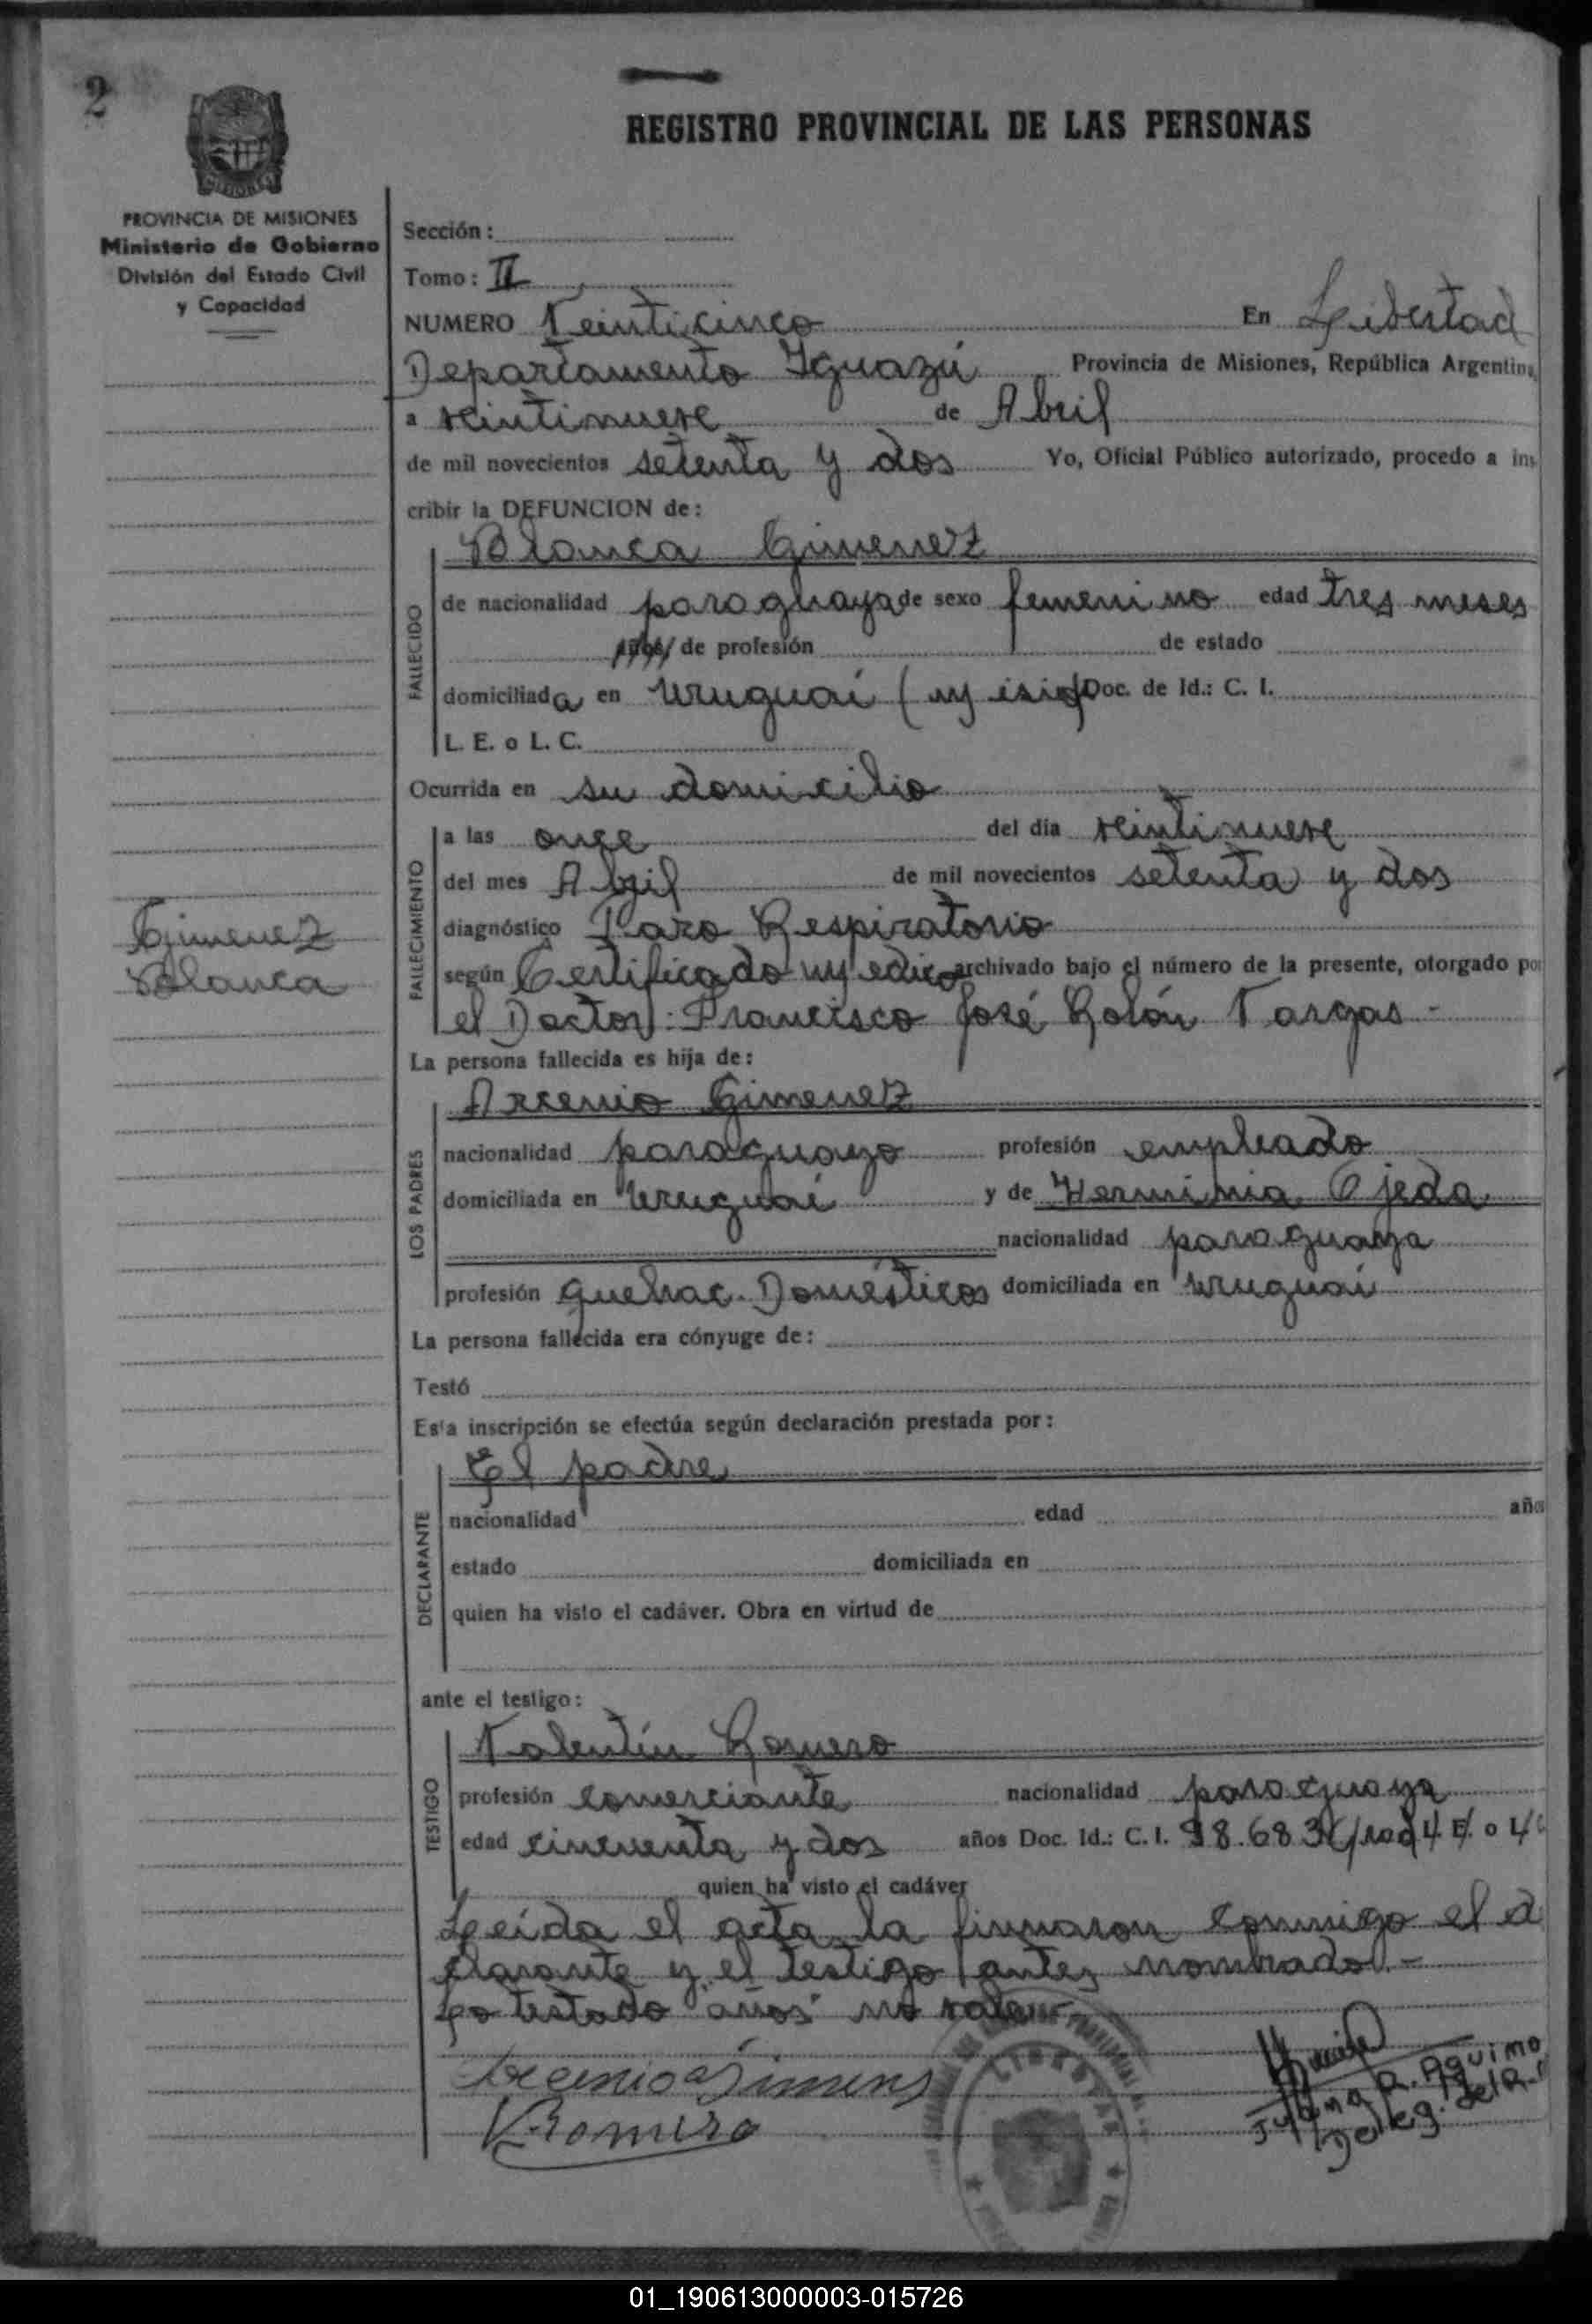 2
REGISTRO PROVINCIAL DE LAS PERSONAS
PROVINCIA DE MISIONES
Ministerio de Gobierno
División del Estado Civil
y Capacidad
Sección:
Tomo: II
NUMERO Veinticinco En Libertad
Departamento Iguazú Provincia de Misiones, República Argentina,
a veintinueve de Abril
de mil novecientos setenta y dos Yo, Oficial Público autorizado, procedo a ins
cribir la DEFUNCION de:
Blanca Gimenez
FALLECIDO
de nacionalidad paraguaya de sexo femenino edad tres meses
años de profesión de estado
domiciliada en Uruguaí (Misio) Doc. de Id.: C. I.
L. E. o L. C.
Ocurrida en su domicilio
FALLECIMIENTO
a las once del día veintinueve
del mes Abril de mil novecientos setenta y dos
diagnóstico Paro Respiratorio
según Certificado Médico archivado bajo el número de la presente, otorgado por
el Doctor: Francisco José Rolón Vargas -
Gimenez
Blanca
La persona fallecida es hija de:
Arcenio Gimenez
LOS PADRES
nacionalidad paraguayo profesión empleado
domiciliada en Uruguaí y de Herminia Ojeda
nacionalidad paraguaya
profesión quehac. Domésticos domiciliada en Uruguaí
La persona fallecida era cónyuge de:
Testó
Esta inscripción se efectúa según declaración prestada por:
El padre
DECLARANTE
nacionalidad edad años
estado domiciliada en
quien ha visto el cadáver. Obra en virtud de
ante el testigo:
Valentín Romero
TESTIGO
profesión comerciante nacionalidad paraguaya
edad cincuenta y dos años Doc. Id.: C. I. 98.683 L. E. o L C
quien ha visto el cadáver
Leída el acta la firmaron conmigo el d
clarante y el testigo antes nombrado.-
Lo testado "años" no vale.-
Arcenio Gimens
V. Romero
LIBERTAD
R. Aquino
Deleg. del R.
01_190613000003-015726